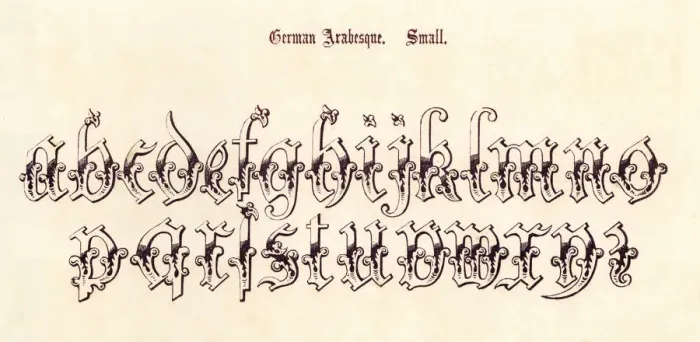 German Arabesque. Small.
abcdefghijklmno
pqrſstuvwxyz